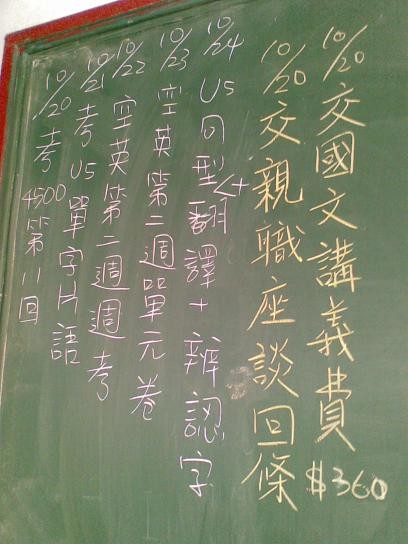 10/20交國文講義費$360
10/20交親職座談回條
10/24 U5句型翻譯+辨認字
10/23 空英第二週單元卷
10/22 空英第二週週考
10/21 考U5單字片語
10/20 考4500第11回